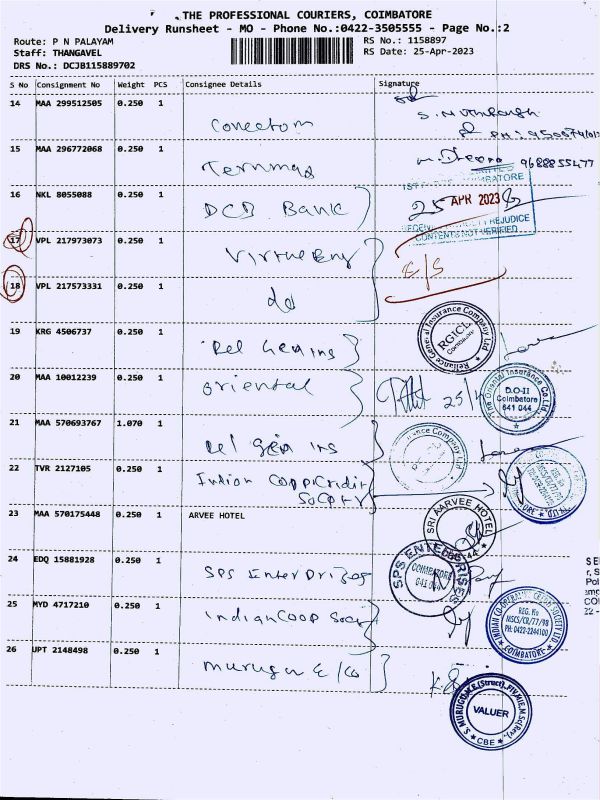 THE PROFESSIONAL COURIERS, COIMBATORE
Delivery Runsheet - MO - Phone No.:0422-3505555 - Page No.:2
Route: P N PALAYAM
RS No.: 1158897
Staff: THANGAVEL
RS Date: 25-Apr-2023
DRS No.: DCJB115889702
S No Consignment No Weight PCS Consignee Details Signature
14 MAA 299512505 0.250 1
15 MAA 296772068 0.250 1 9688855477
16 NKL 8055088 0.250 1 DCB Bank
25 APR 2023
CONTENTS NOT VERIFIED
17 VPL 217973073 0.250 1
18 VPL 217573331 0.250 1 do
19 KRG 4506737 0.250 1 Rel Gen ins
Reliance General Insurance Company Ltd.
RGICL
20 MAA 10012239 0.250 1 oriental
The Oriental Insurance Co. Ltd.
D.O-II
Coimbatore
641 044
21 MAA 570693767 1.070 1 Rel Gen ins
22 TVR 2127105 0.250 1 Indian
23 MAA 570175448 0.250 1 ARVEE HOTEL
SRI AARVEE HOTEL
24 EDQ 15881928 0.250 1 SPS Enterprises
SPS ENTERPRISES
COIMBATORE
25 MYD 4717210 0.250 1 Indian Coop
INDIAN CO-OPERATIVE CREDIT SOCIETY LTD
REG. No
MSCS/CR/77/98
PH: 0422-2244100
COIMBATORE
26 UPT 2148498 0.250 1 Murugan & Co
VALUER
CBE